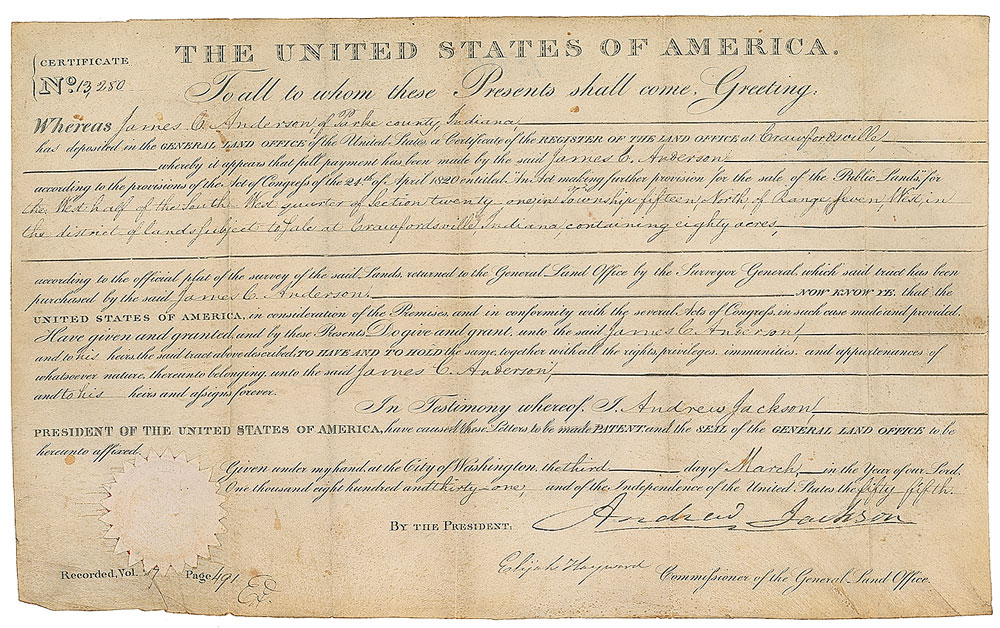 THE UNITED STATES OF AMERICA.
CERTIFICATE
No. 13,280
To all to whom these Presents shall come, Greeting:
Whereas James C. Anderson of Parke county, Indiana,
has deposited in the GENERAL LAND OFFICE of the United States, a Certificate of the REGISTER OF THE LAND OFFICE at Crawfordsville
whereby it appears that full payment has been made by the said James C. Anderson
according to the provisions of the Act of Congress of the 24th of April 1820 entitled An Act making further provision for the sale of the Public Lands, for
the West half of the South West quarter of Section twenty one in Township fifteen, North of Range Seven, West, in
the district of lands subject to sale at Crawfordsville, Indiana, containing eighty acres,
according to the official plat of the survey of the said Lands, returned to the General Land Office by the Surveyor General, which said tract has been
purchased by the said James C. Anderson, NOW KNOW YE, that the
UNITED STATES OF AMERICA, in consideration of the Premises, and in conformity with the several Acts of Congress, in such case made and provided,
Have given and granted, and by these Presents Do give and grant, unto the said James C. Anderson,
and to his heirs, the said tract above described, TO HAVE AND TO HOLD the same, together with all the rights, privileges, immunities, and appurtenances of
whatsoever nature, thereunto belonging, unto the said James C. Anderson,
and to his heirs and assigns forever.
In Testimony whereof, I, Andrew Jackson,
PRESIDENT OF THE UNITED STATES OF AMERICA, have caused these Letters to be made PATENT, and the SEAL of the GENERAL LAND OFFICE to be
hereunto affixed.
Given under my hand, at the City of Washington, the third day of March, in the Year of our Lord,
One thousand eight hundred and thirty-one, and of the Independence of the United States the fifty fifth.
BY THE PRESIDENT: Andrew Jackson
Elijah Hayward Commissioner of the General Land Office.
Recorded, Vol. Page 491